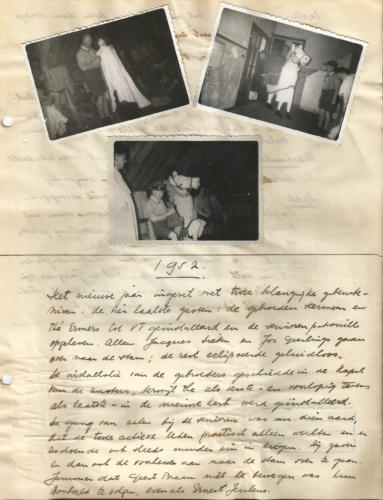 1952.
Het nieuwe jaar ingezet met twee belangrijke gebeurte-
nissen: de drie laatste gasten: de gebroeders Hermsen en
Thé Ermers tot VT geïnstalleerd en de seniorenpatrouille
opgeheven. Alleen Jacques en Jos Geurtings gaan
over naar de stam; de rest eclipseerde geluidloos.
De installatie van de gebroeders geschiedde in de kapel
van de zusters, terwijl Thé als eerste - en voorlopig tevens
als laatste - in de nieuwe kerk werd geïnstalleerd.
De gang van zaken bij de senioren was van dien aard,
dat de twee actieve leden practisch alleen en er
ook steeds minder zin in kregen. Zij gaven
er dan ook de voorkeur aan naar de stam over te gaan.
Jammer dat Geert Braam niet te bewegen was hun
voorbeeld te volgen, evenals Ernest